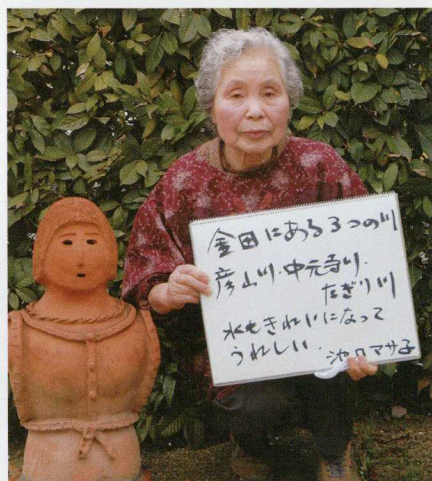 金田にある3つの川
彦山川・中元寺川・
たぎり川
水もきれいになって
うれしい。
池口マサ子